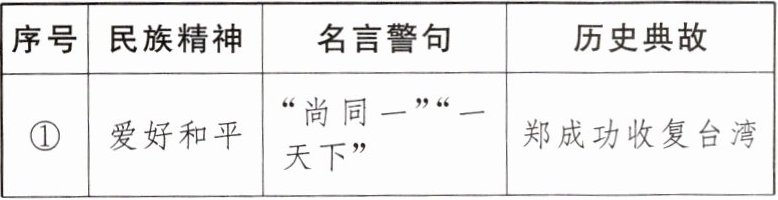 序号 民族精神 名言警句 历史典故
① 爱好和平 “尚同一”“一天下” 郑成功收复台湾